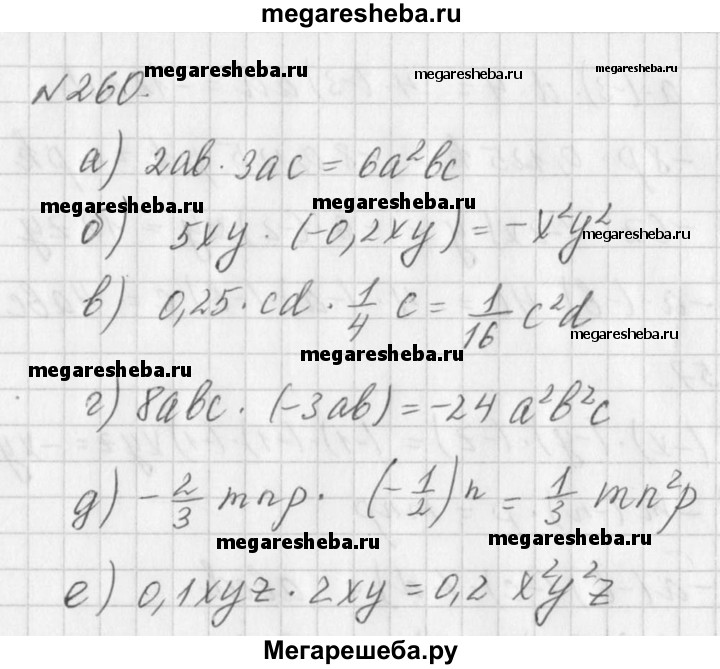 megaresheba.ru
megaresheba.ru
megaresheba.ru
megaresheba.ru
№260.
а) 2ab · 3ac = 6a²bc
megaresheba.ru
megaresheba.ru
megaresheba.ru
б) 5xy · (-0,2xy) = -x²y²
в) 0,25 · cd · 1/4 c = 1/16 c²d
megaresheba.ru
megaresheba.ru
megaresheba.ru
г) 8abc · (-3ab) = -24 a²b²c
д) -2/3 mnp · (-1/2)n = 1/3 mn²p
megaresheba.ru
megaresheba.ru
е) 0,1xyz · 2xy = 0,2 x²y²z
Мегарешеба.ру